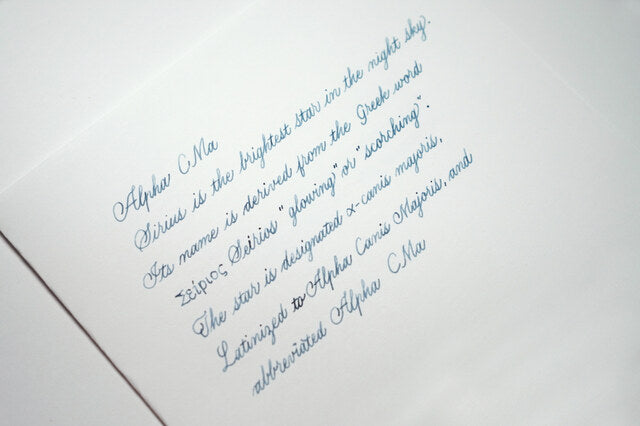 Alpha CMa
Sirius is the brightest star in the night sky.
Its name is derived from the Greek word
Σείριος Seirios "glowing" or "scorching".
The star is designated α-canis majoris,
Latinized to Alpha Canis Majoris, and
abbreviated Alpha CMa